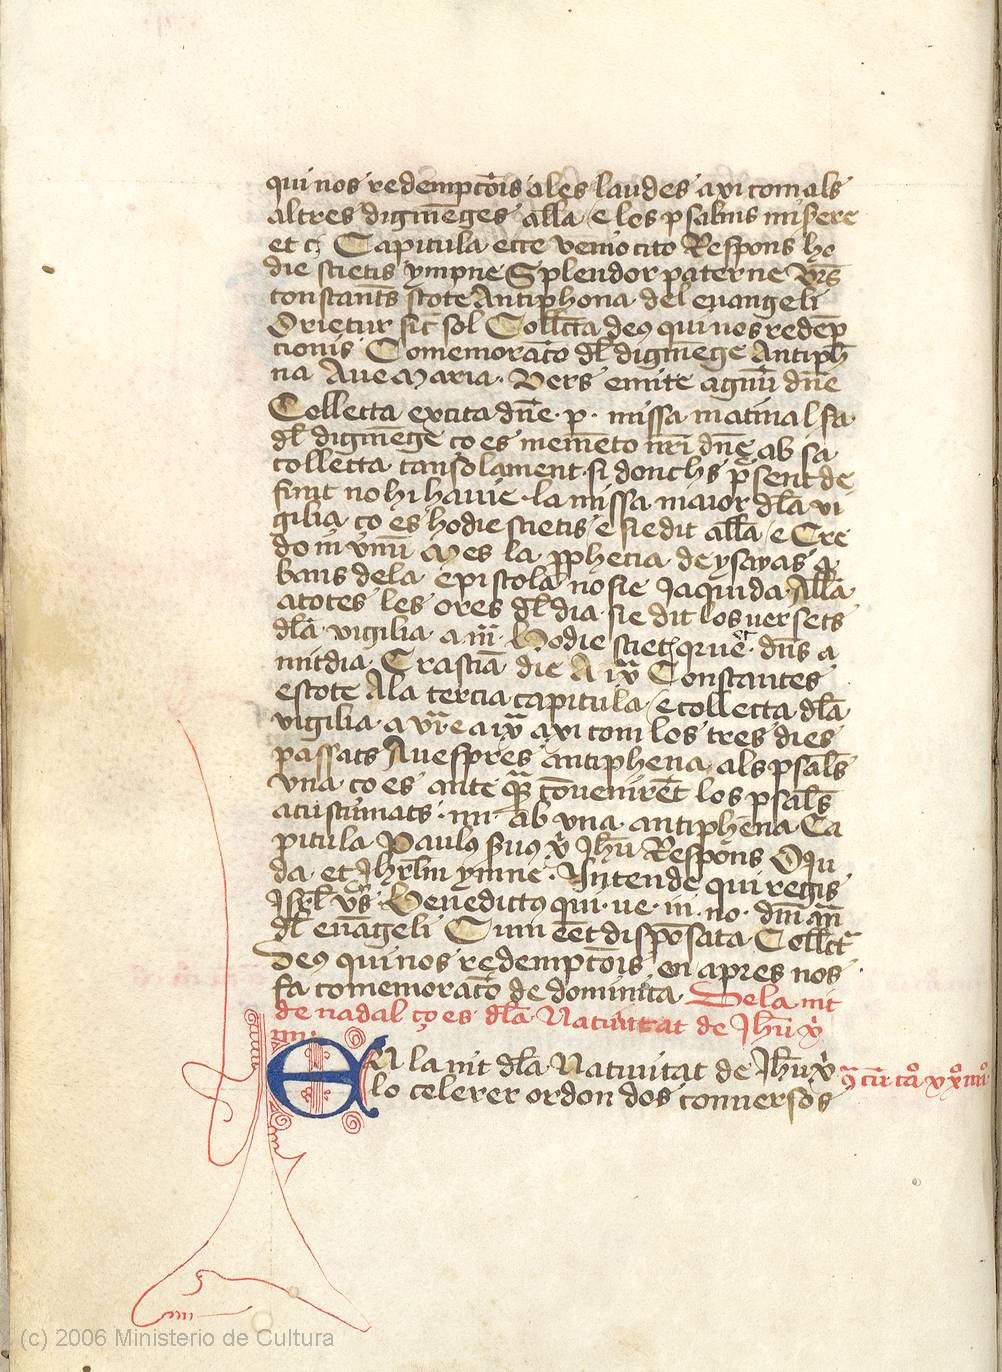 qui nos redempcōis ales laudes axi com als
altres digmēges alla e los psalms misere
et cʒ Capitula ecce venio cito Respons ho
die scietis ympne Splendor paterne Vrs̄
constants̄ stote Antiphona del euangeli
Orietur sic̄ sol Collcta deꝰ qui nos redēp
cionis Comemoraco dl̄ digmēge Antiph̄
na Aue Maria. Vers emitte agnū dn̄e
Collecta excita dn̄e . p . missa matinal fa
dl̄ digmēge ço es memēto nr̄i dn̄e ab sa
collecta tan solament . si donchs p̄sent de
funt no hi hauie . la missa maior dl̄a vi
gilia ço es hodie scietis e sie dit alla e Cre
do in vnū Mes la ꝓphecia de ysayas
bans dela epistola no sie jaquida . Alla
a totes les ores dl̄ dia sie dit los versets
dl̄a vigilia . a . Hodie dn̄s a
mitdia . Crastiā die A ix Constantes
estote A la tercia capitula e collecta dl̄a
vigilia . a vr̄e a ix axi com los tres dies
passats A vespres antiphena als psal̄s
vna ço es ante qꝫ cōueniret los psal̄s
acustumats . iiii . ab vna . antiphēna Ca
pitula Paulꝰ suꝰ xp̄i Jhū Respons O Ju
da et Jhrl̄m ymne . Intende qui regis
Isrl̄ vs̄ . Benedictꝰ qui . ue . in . no . dn̄i an̄
dl̄ euāgeli Cum eēt disposata . Collcta
Deꝰ qui nos redempcōis en apres nos
fa comemoraco de dominica . De la nit
de nadal ço es dl̄a Natiuitat de Jhū xp̄
EN la nit dl̄a Natiuitat de Jhū xp̄
lo celerer ordon dos conuersos
(c) 2006 Ministerio de Cultura